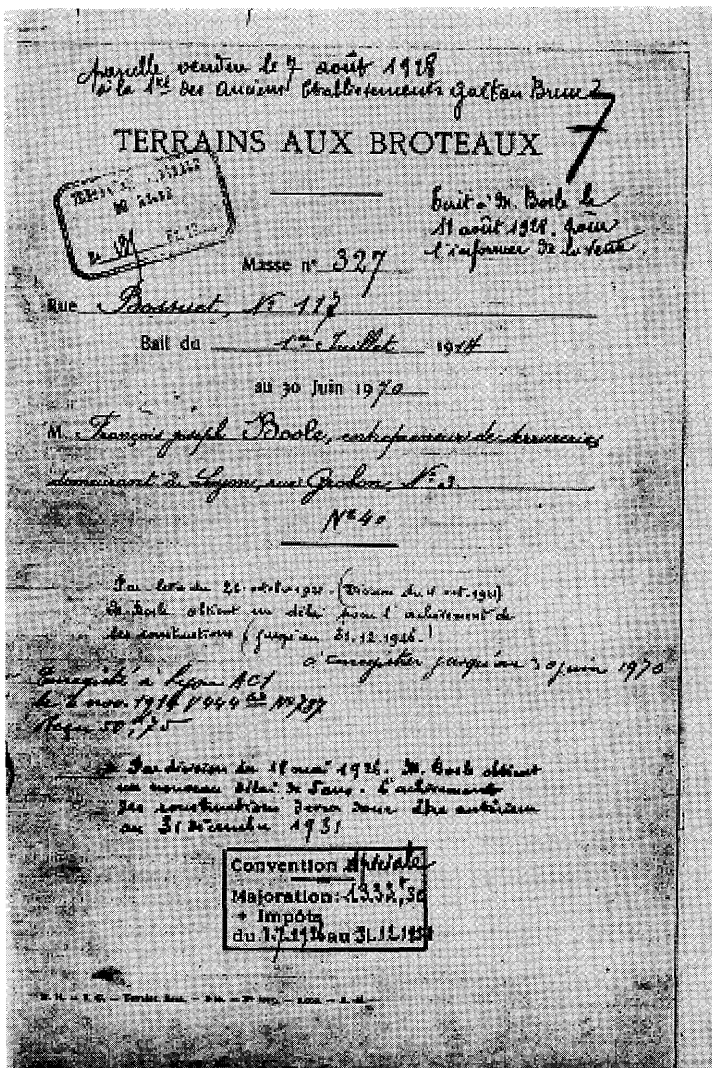 parcelle vendue le 7 août 1928
à la Sté des Anciens Etablissements Gaëtan Brun
7
TERRAINS AUX BROTEAUX
Ecrit à M. Bosle le
11 août 1928 pour
l'informer de la vente.
Masse n° 327
Rue Bossuet, N° 117
Bail du 1er Juillet 1914
au 30 Juin 1970
M. François joseph Bosle, entrepreneur de serrurerie
demeurant à Lyon, rue Grolon, N° 3.
N° 40
(Décision du 4 oct. 1921)
M. Bosle obtient un délai pour l'achèvement de
ses constructions (jusqu'au 31.12.1926.)
à enregistrer jusqu'au 30 juin 1970
Enregistré à Lyon AC1
le 2 nov. 1914 N° 787
Reçu
Par décision du 18 mai 1926. M. Bosle obtient
un nouveau délai de 5 ans. L'achèvement
des constructions devra donc être antérieur
au 31 décembre 1931
Convention spéciale
Majoration: 1332,30
+ Impôts
du 1.7.1926 au 31.12.19